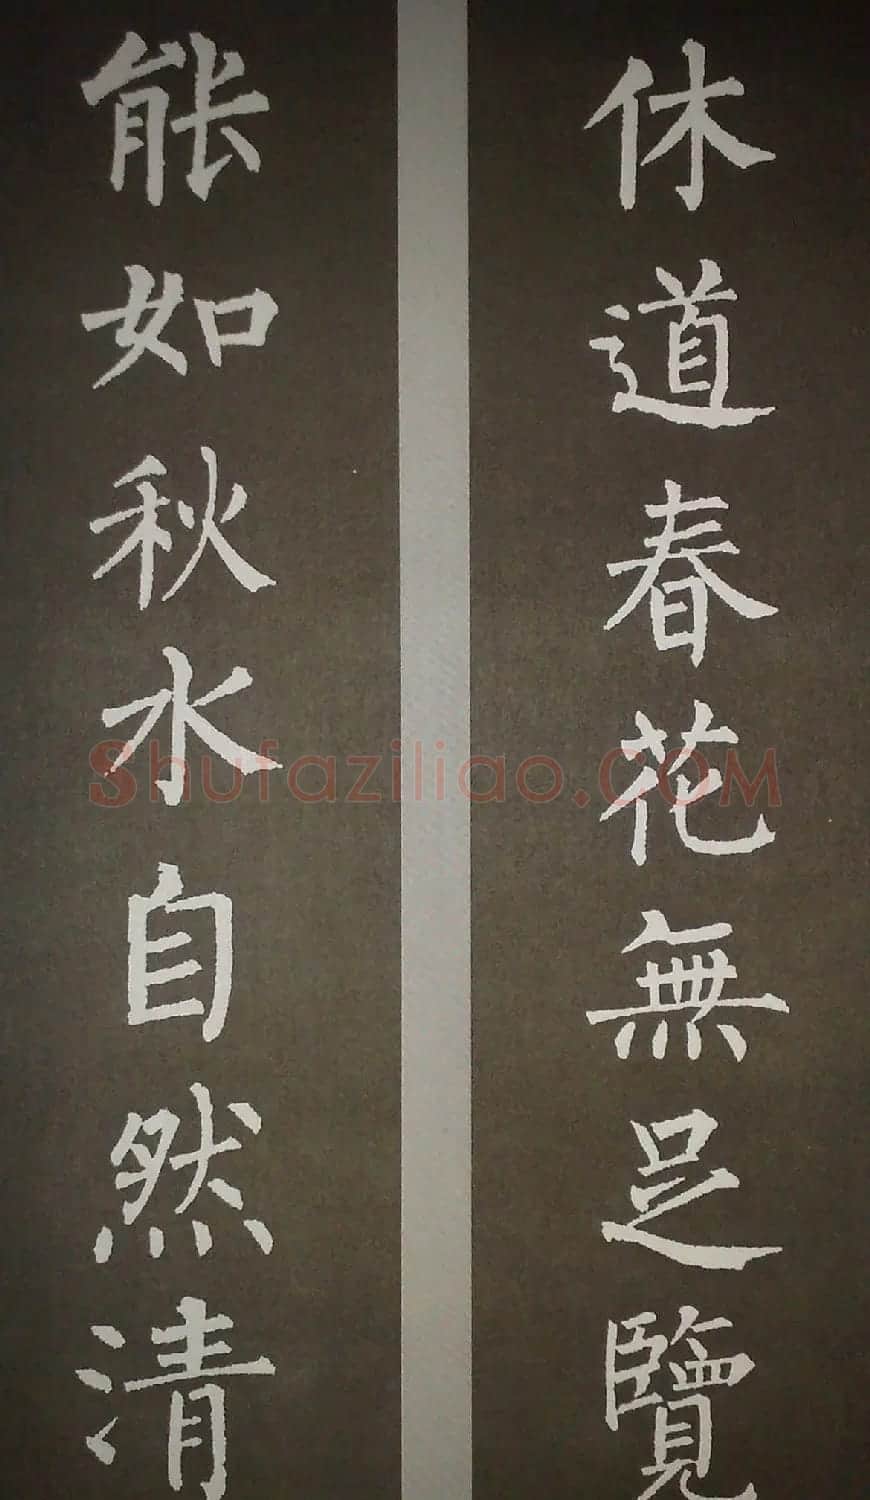 休道春花無足覽
能如秋水自然清
Shufaziliao.COM